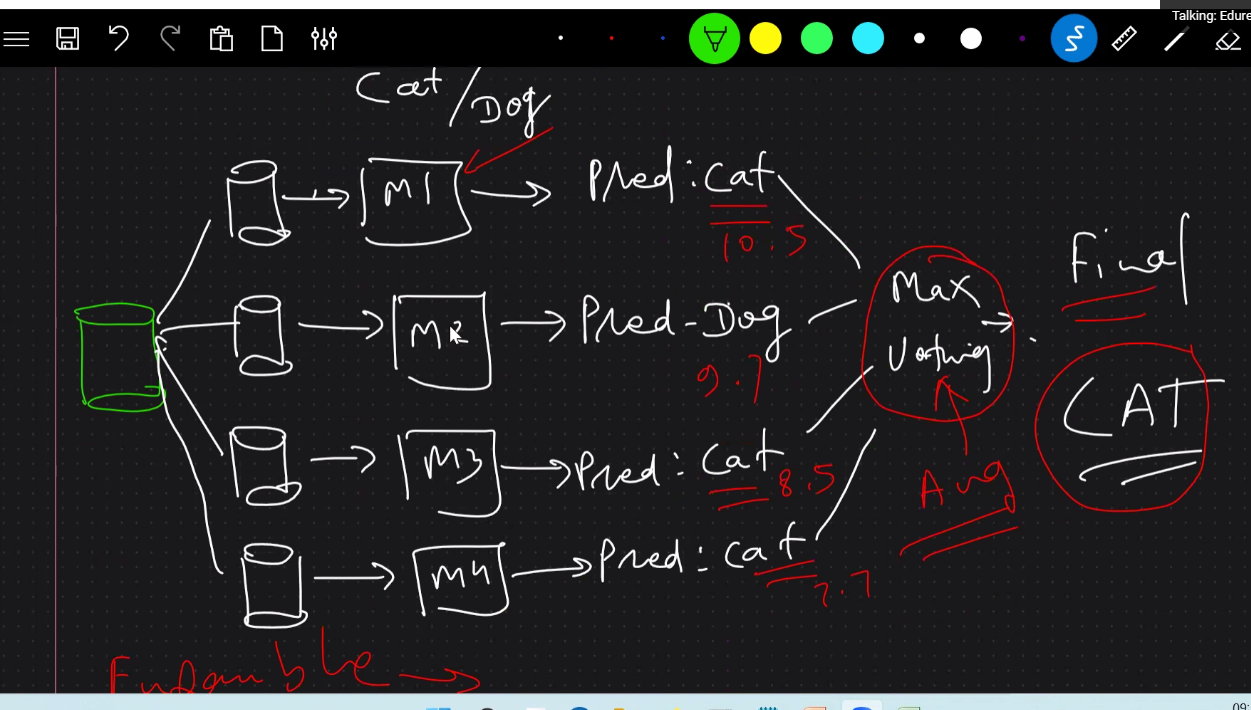 Talking: Edure
Cat/Dog
M1
Pred: Cat
10.5
M2
Pred-Dog
9.7
M3
Pred: Cat
8.5
M4
Pred: Cat
7.7
Max
Voting
Avg
Final
CAT
09: